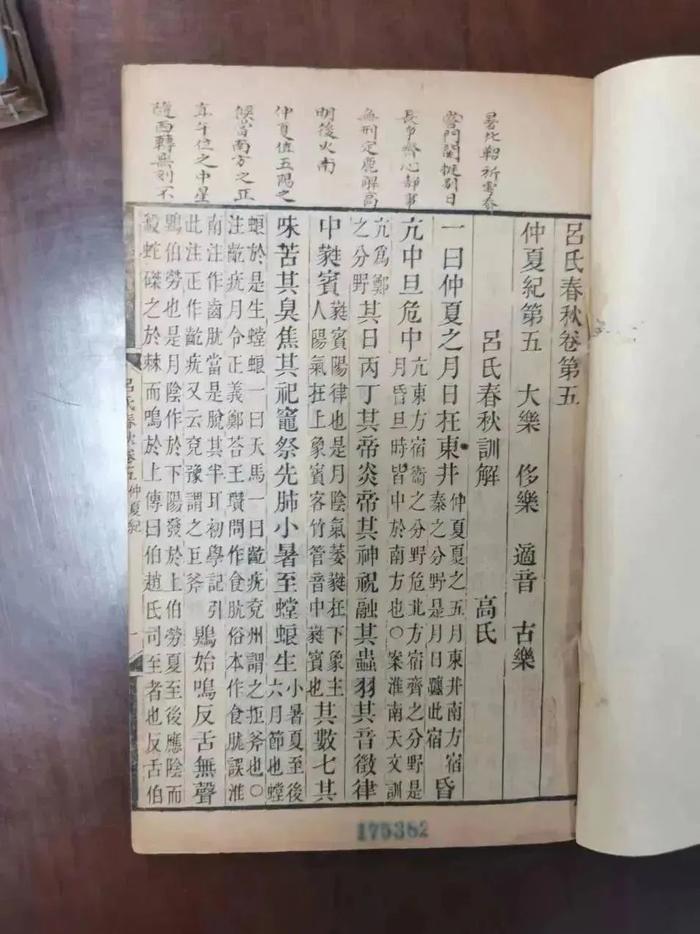 門閭挺別日
長爭齊心
無刑定鹿解高
明後火南
仲夏值五陽之
候當南方之正
午位之中星
西轉無刻不
呂氏春秋卷第五
仲夏紀第五 大樂 侈樂 適音 古樂
呂氏春秋訓解 高氏
一曰仲夏之月日在東井仲夏夏之五月東井南方宿秦之分野是月日躔此宿昏
亢中旦危中亢東方宿衞之分野危北方宿齊之分野是月昏旦時皆中於南方也〇案淮南天文訓
亢爲鄭之分野其日丙丁其帝炎帝其神祝融其蟲羽其音徵律
中蕤賓蕤賓陽律也是月陰氣萎蕤在下象主人陽氣在上象賓客竹管音中蕤賓也其數七其
味苦其臭焦其祀竈祭先肺小暑至螳蜋生小暑夏至後六月節也螳
蜋於是生螳蜋一曰天馬一曰齕疣兗州謂之拒斧也〇
注齕疣月令正義鄭荅王瓚問作食肬俗本作食胧誤淮
南注作齒肬當是脫其半耳初學記引
此注正作齕疣又云兗豫謂之巨斧鶪始鳴反舌無聲
鶪伯勞也是月陰作於下陽發於上伯勞夏至後應陰而
殺蛇磔之於棘而鳴於上傳曰伯趙氏司至者也反舌伯
呂氏春秋卷五仲夏紀 一
175382